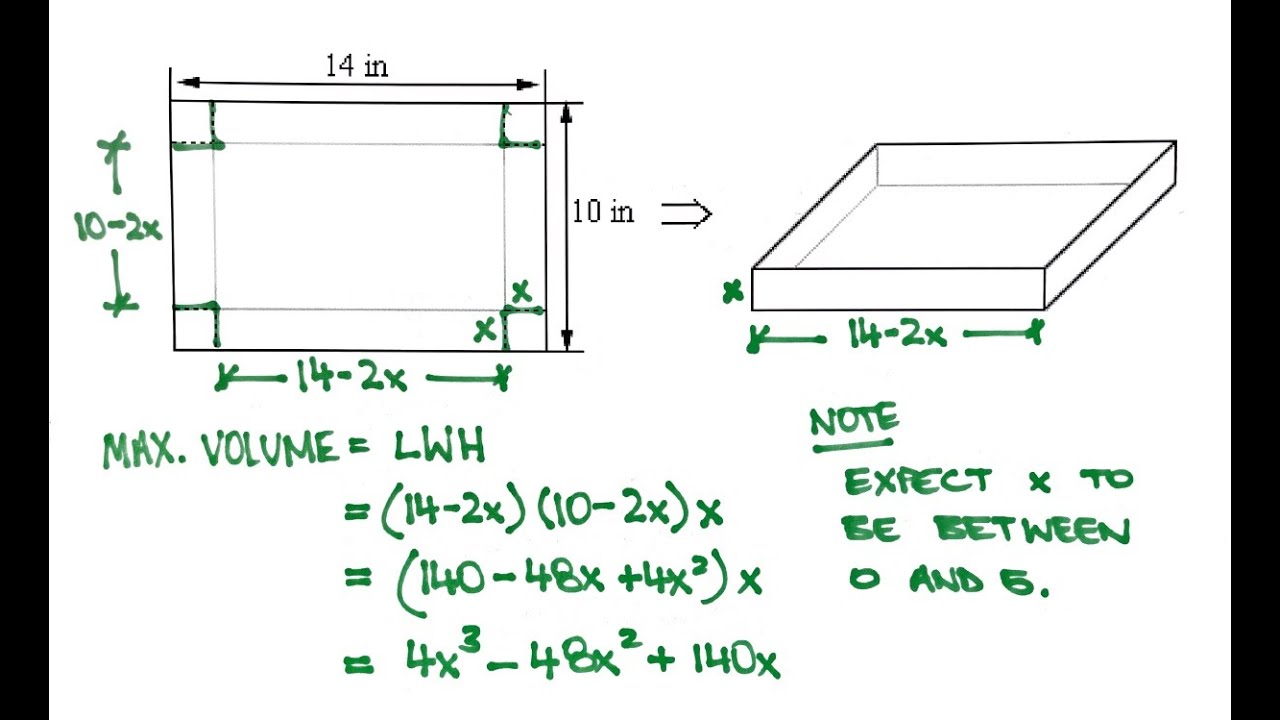 14 in
10-2x
10 in
x
x
14-2x
x
14-2x
MAX. VOLUME = LWH
= (14-2x)(10-2x)x
= (140-48x+4x²)x
= 4x³-48x²+140x
NOTE
EXPECT x TO
BE BETWEEN
0 AND 5.